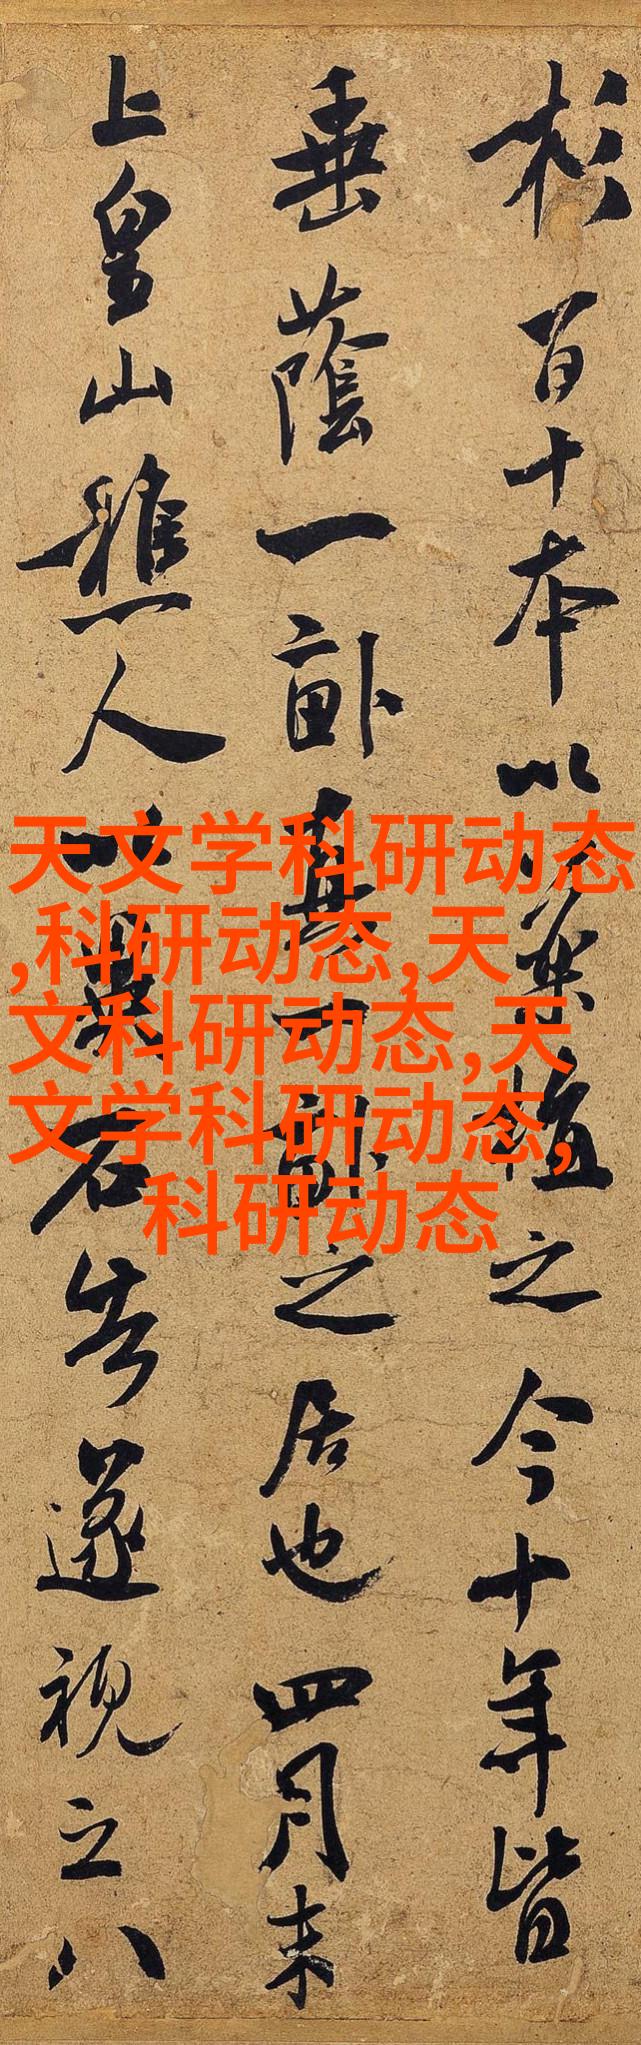 杉百十本以藥植之今十年皆
垂蔭一畝真一畝之居也四月末
上皇山樵人以異石告遂視之八
天文学科研动态
,科研动态,天
文科研动态,天
文学科研动态,
科研动态